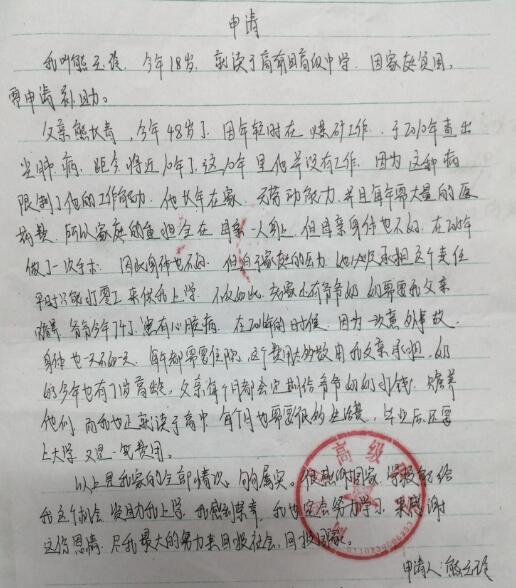 申请
我叫熊玉强，今年18岁，就读于商南县高级中学，因家庭贫困，
要申请补助。
父亲熊长青，今年48岁了，因年轻时在煤矿工作，于2010年查出
尘肺病，距今将近10年了，这10年里他并没有工作，因为这种病
限制了他的工作能力，他长年在家，无劳动能力，并且每年要大量的医
药费，所以家庭的重担全在母亲一人身上，但母亲身体也不好，在
做了一次手术，因此身体也不好，但由于家庭的压力，她必须承担这个责任
平时只能打零工来供我上学，不仅如此，老家还有爷爷奶奶需要我父亲
赡养，爷爷今年了，患有心脏病，在年的时候，因为一次意外事故，
身体也一天不如一天，每年都需要住院，这个费用大多数由我父亲承担，奶
奶今年也有了高龄，父亲每个月都会定期给爷爷奶奶打钱，赡养
他们，而我也正就读于高中，每个月也需要很多生活费，毕业后还要
上大学，又是一笔费用。
以上是我家的全部情况，句句属实。很感谢国家、学校能给
我这个机会，资助我上学，我感到荣幸，我也定会努力学习，来感谢
这份恩情，尽我最大的努力去回报社会，回报国家。
申请人：熊玉强
高级